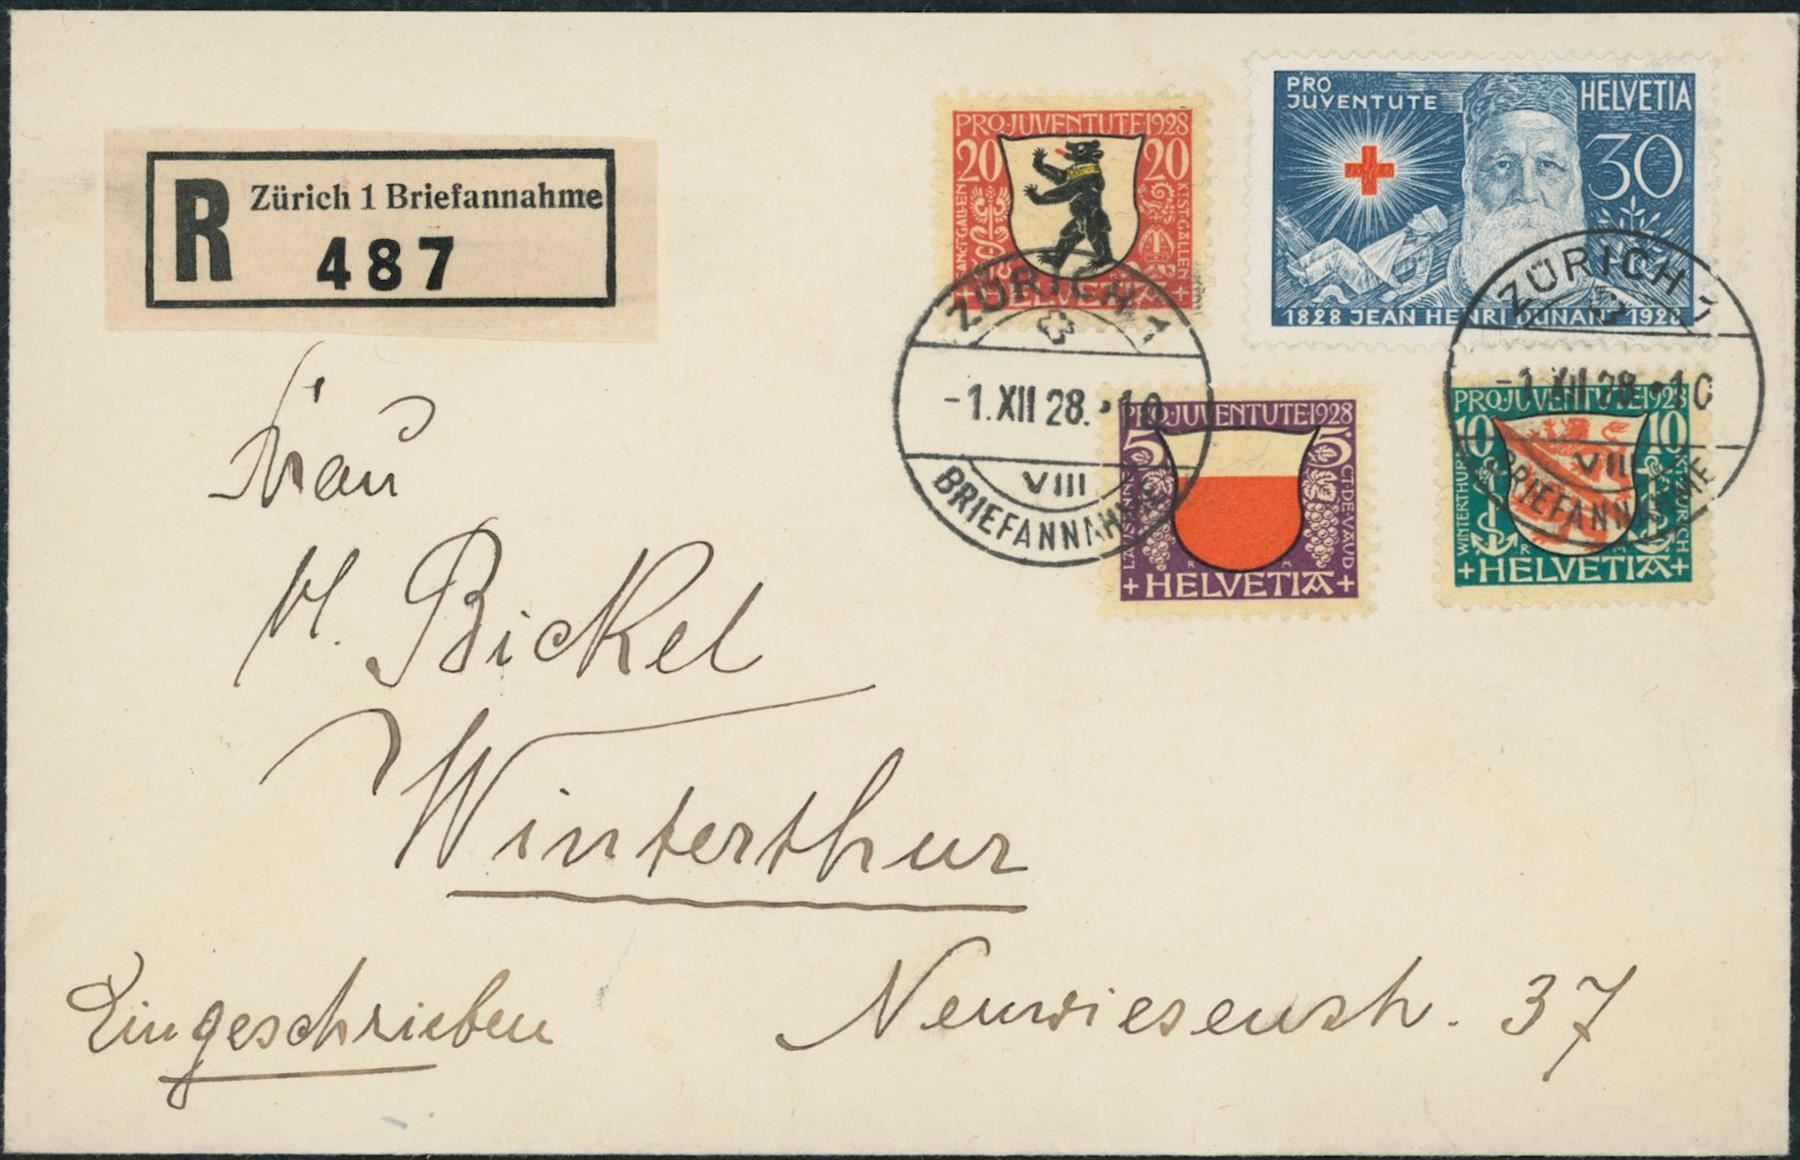 R Zürich 1 Briefannahme
487
PRO JUVENTUTE 1928
20 20
SANKT GALLEN
KT. ST. GALLEN
+ HELVETIA +
PRO
JUVENTUTE
HELVETIA
30
1828 JEAN HENRI DUNANT 1928
ZÜRICH 1
-1.XII 28.•10
VIII
BRIEFANNAHME
PRO JUVENTUTE 1928
5 5
LAUSANNE
CT·DE·VAUD
R M
+ HELVETIA +
ZÜRICH 1
-1.XII 28.•10
VIII
BRIEFANNAHME
PRO JUVENTUTE 1928
10 10
WINTERTHUR
ZÜRICH
R M
+HELVETIA+
Frau
M. Bickel
Winterthur
Eingeschrieben
Neuwiesenstr. 37